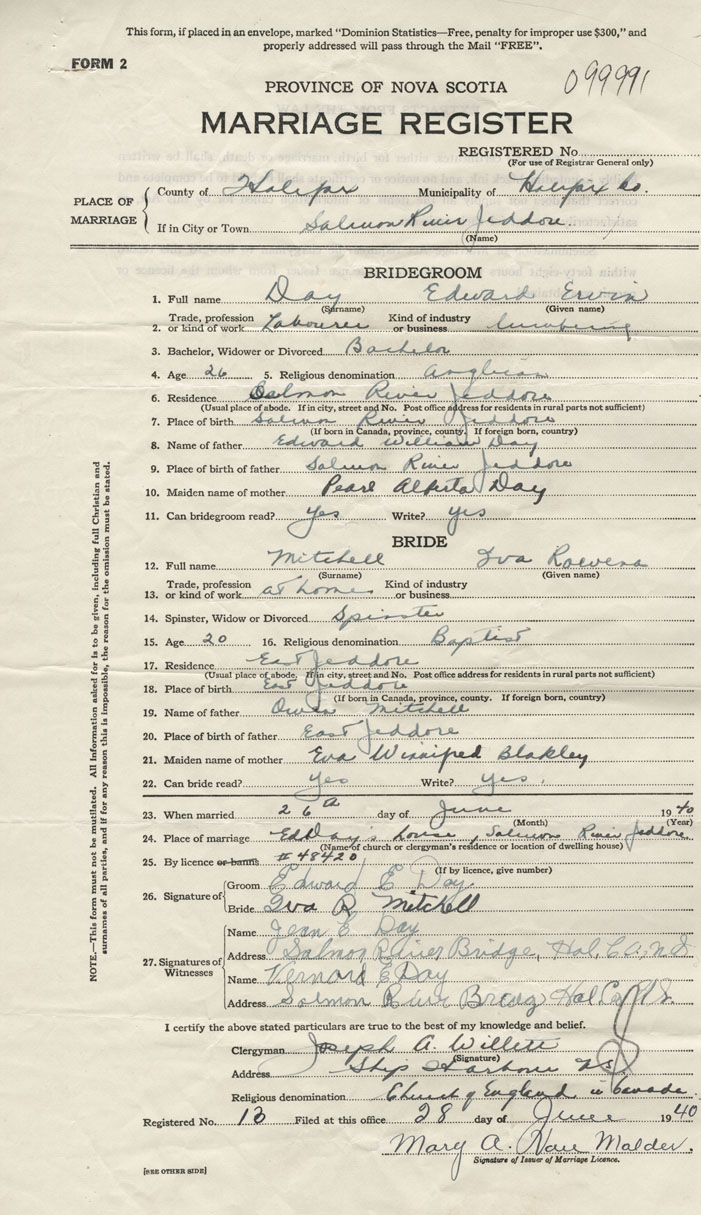 This form, if placed in an envelope, marked "Dominion Statistics—Free, penalty for improper use $300," and
properly addressed will pass through the Mail "FREE".
FORM 2
099991
PROVINCE OF NOVA SCOTIA
MARRIAGE REGISTER
REGISTERED No.
(For use of Registrar General only)
PLACE OF MARRIAGE
County of Halifax Municipality of Halifax Co.
If in City or Town Salmon River Jeddore
(Name)
BRIDEGROOM
1. Full name Day Edward Erwin
(Surname) (Given name)
2. Trade, profession or kind of work Labourer Kind of industry or business lumbering
3. Bachelor, Widower or Divorced Bachelor
4. Age 26 5. Religious denomination Anglican
6. Residence Salmon River Jeddore
(Usual place of abode. If in city, street and No. Post office address for residents in rural parts not sufficient)
7. Place of birth Salmon River Jeddore
(If born in Canada, province, county. If foreign born, country)
8. Name of father Edward William Day
9. Place of birth of father Salmon River Jeddore
10. Maiden name of mother Pearl Alberta Day
11. Can bridegroom read? Yes Write? yes
BRIDE
12. Full name Mitchell Iva Rowena
(Surname) (Given name)
13. Trade, profession or kind of work at home Kind of industry or business
14. Spinster, Widow or Divorced Spinster
15. Age 20 16. Religious denomination Baptist
17. Residence East Jeddore
(Usual place of abode. If in city, street and No. Post office address for residents in rural parts not sufficient)
18. Place of birth East Jeddore
(If born in Canada, province, county. If foreign born, country)
19. Name of father Owen Mitchell
20. Place of birth of father East Jeddore
21. Maiden name of mother Eva Winnifred Blakley
22. Can bride read? yes Write? yes.
23. When married 26 day of June 1940
(Month) (Year)
24. Place of marriage Ed Day's house, Salmon River Jeddore
(Name of church or clergyman's residence or location of dwelling house)
25. By licence or banns #48420
(If by licence, give number)
26. Signature of
Groom Edward E Day
Bride Iva R Mitchell
27. Signatures of Witnesses
Name Jean E Day
Address Salmon River Bridge, Hal. Co, N.S
Name Vernard E Day
Address Salmon River Hal Co N.S.
I certify the above stated particulars are true to the best of my knowledge and belief.
Clergyman Joseph A. Willett
(Signature)
Address Ship Harbour NS
Religious denomination Church of England in Canada.
Registered No. 13 Filed at this office 28 day of June 1940
Mary A. Malder.
Signature of Issuer of Marriage Licence.
[SEE OTHER SIDE]
NOTE.—This form must not be mutilated. All Information asked for is to be given, including full Christian and
surnames of all parties, and if for any reason this is impossible, the reason for the omission must be stated.